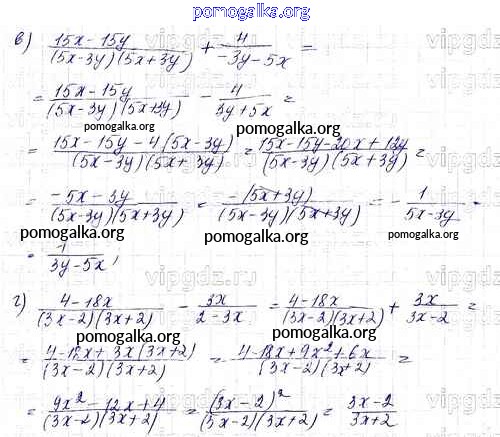 pomogalka.org
в) (15x-15y)/((5x-3y)(5x+3y)) + 4/(-3y-5x) =
= (15x-15y)/((5x-3y)(5x+3y)) - 4/(3y+5x) =
pomogalka.org pomogalka.org
= (15x-15y-4(5x-3y))/((5x-3y)(5x+3y)) = (15x-15y-20x+12y)/((5x-3y)(5x+3y)) =
pomogalka.org pomogalka.org
= (-5x-3y)/((5x-3y)(5x+3y)) = (-(5x+3y))/((5x-3y)(5x+3y)) = - 1/(5x-3y) =
pomogalka.org pomogalka.org
= 1/(3y-5x);
г) (4-18x)/((3x-2)(3x+2)) - 3x/(2-3x) = (4-18x)/((3x-2)(3x+2)) + 3x/(3x-2) =
pomogalka.org pomogalka.org
= (4-18x+3x(3x+2))/((3x-2)(3x+2)) = (4-18x+9x²+6x)/((3x-2)(3x+2)) =
= (9x²-12x+4)/((3x-2)(3x+2)) = (3x-2)²/((3x-2)(3x+2)) = (3x-2)/(3x+2)
pomogalka.org pomogalka.org
vipgdz.ru